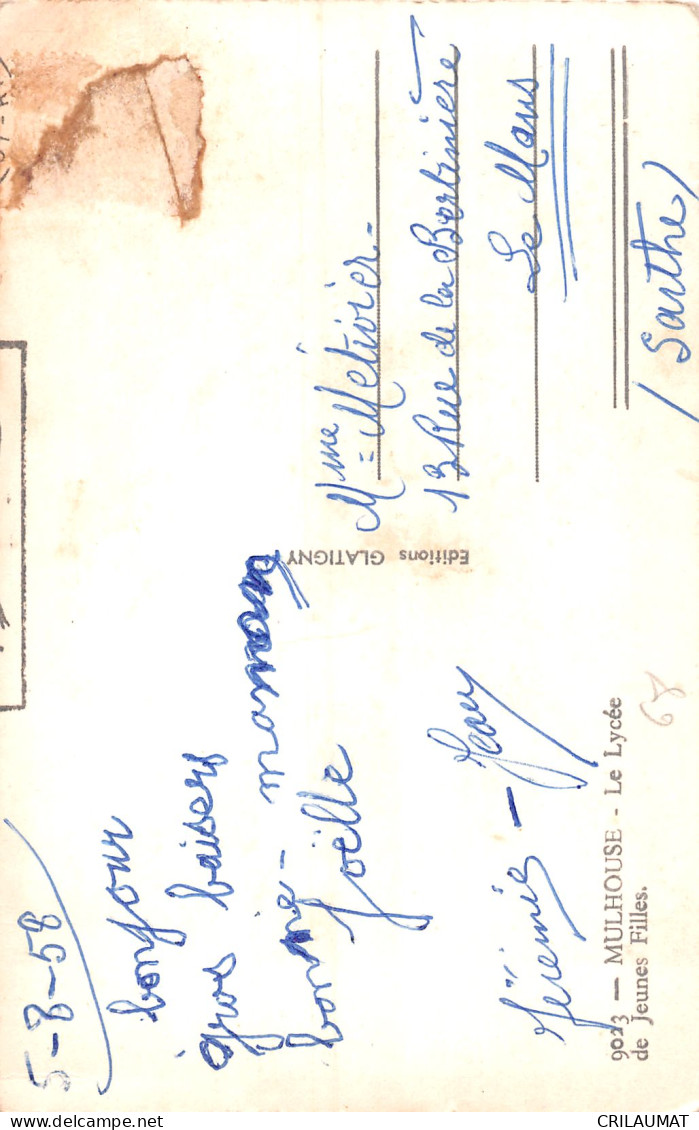 5-8-58
bonjour
gros baisers
bonne-maman
joëlle
Jérémie - Jean
9023 — MULHOUSE - Le Lycée
de Jeunes Filles.
68
Editions GLATIGNY
Mme = Métivier -
13 Rue de la Bertinière
Le Mans
(Sarthe)
CRILAUMAT